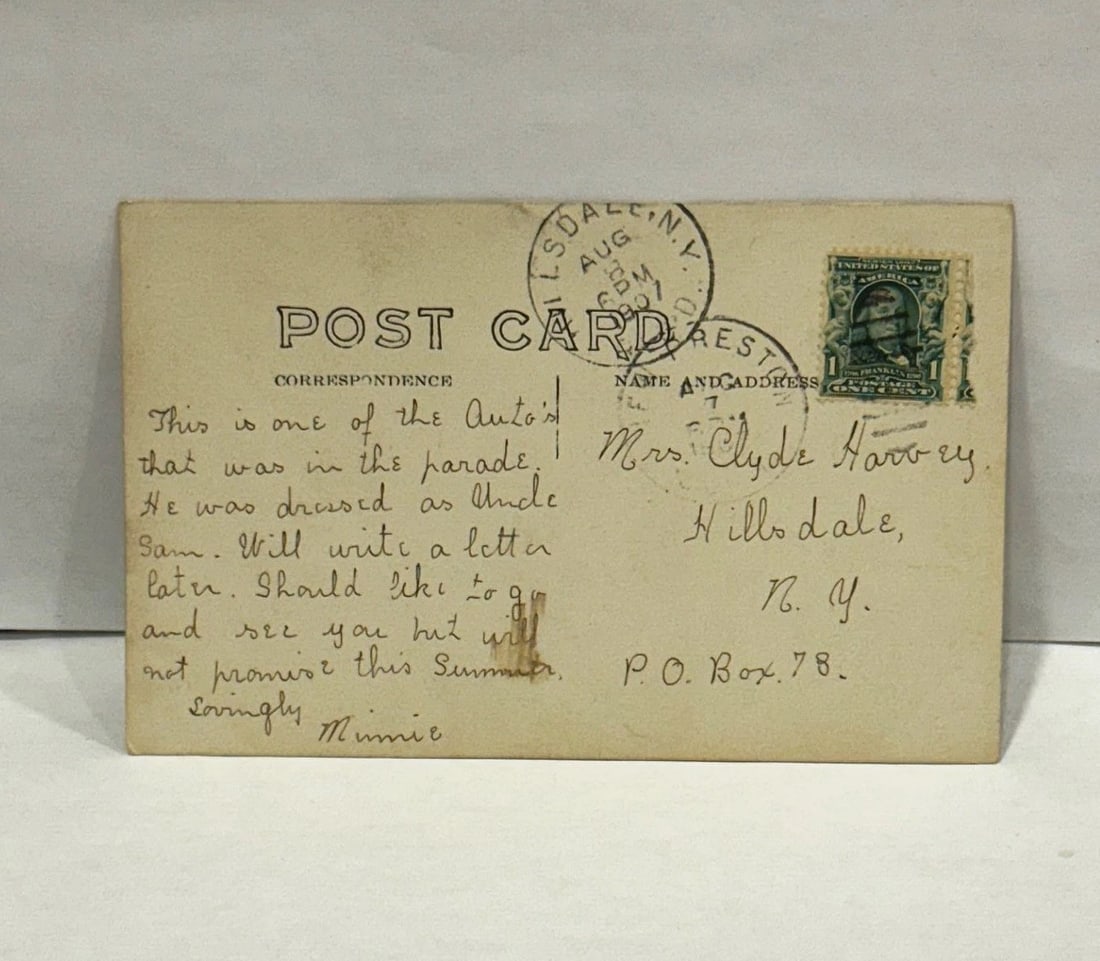 HILLSDALE, N.Y.
AUG
6 PM
POST CARD
PRESTON
AUG
7
UNITED STATES OF
AMERICA
1 FRANKLIN 1
POSTAGE
ONE CENT
CORRESPONDENCE
NAME AND ADDRESS
This is one of the Auto's
that was in the parade.
He was dressed as Uncle
Sam. Will write a letter
later. Should like to go
and see you but will
not promise this Summer.
Lovingly
Minnie
Mrs. Clyde Harvey.
Hillsdale,
N. Y.
P. O. Box. 78.